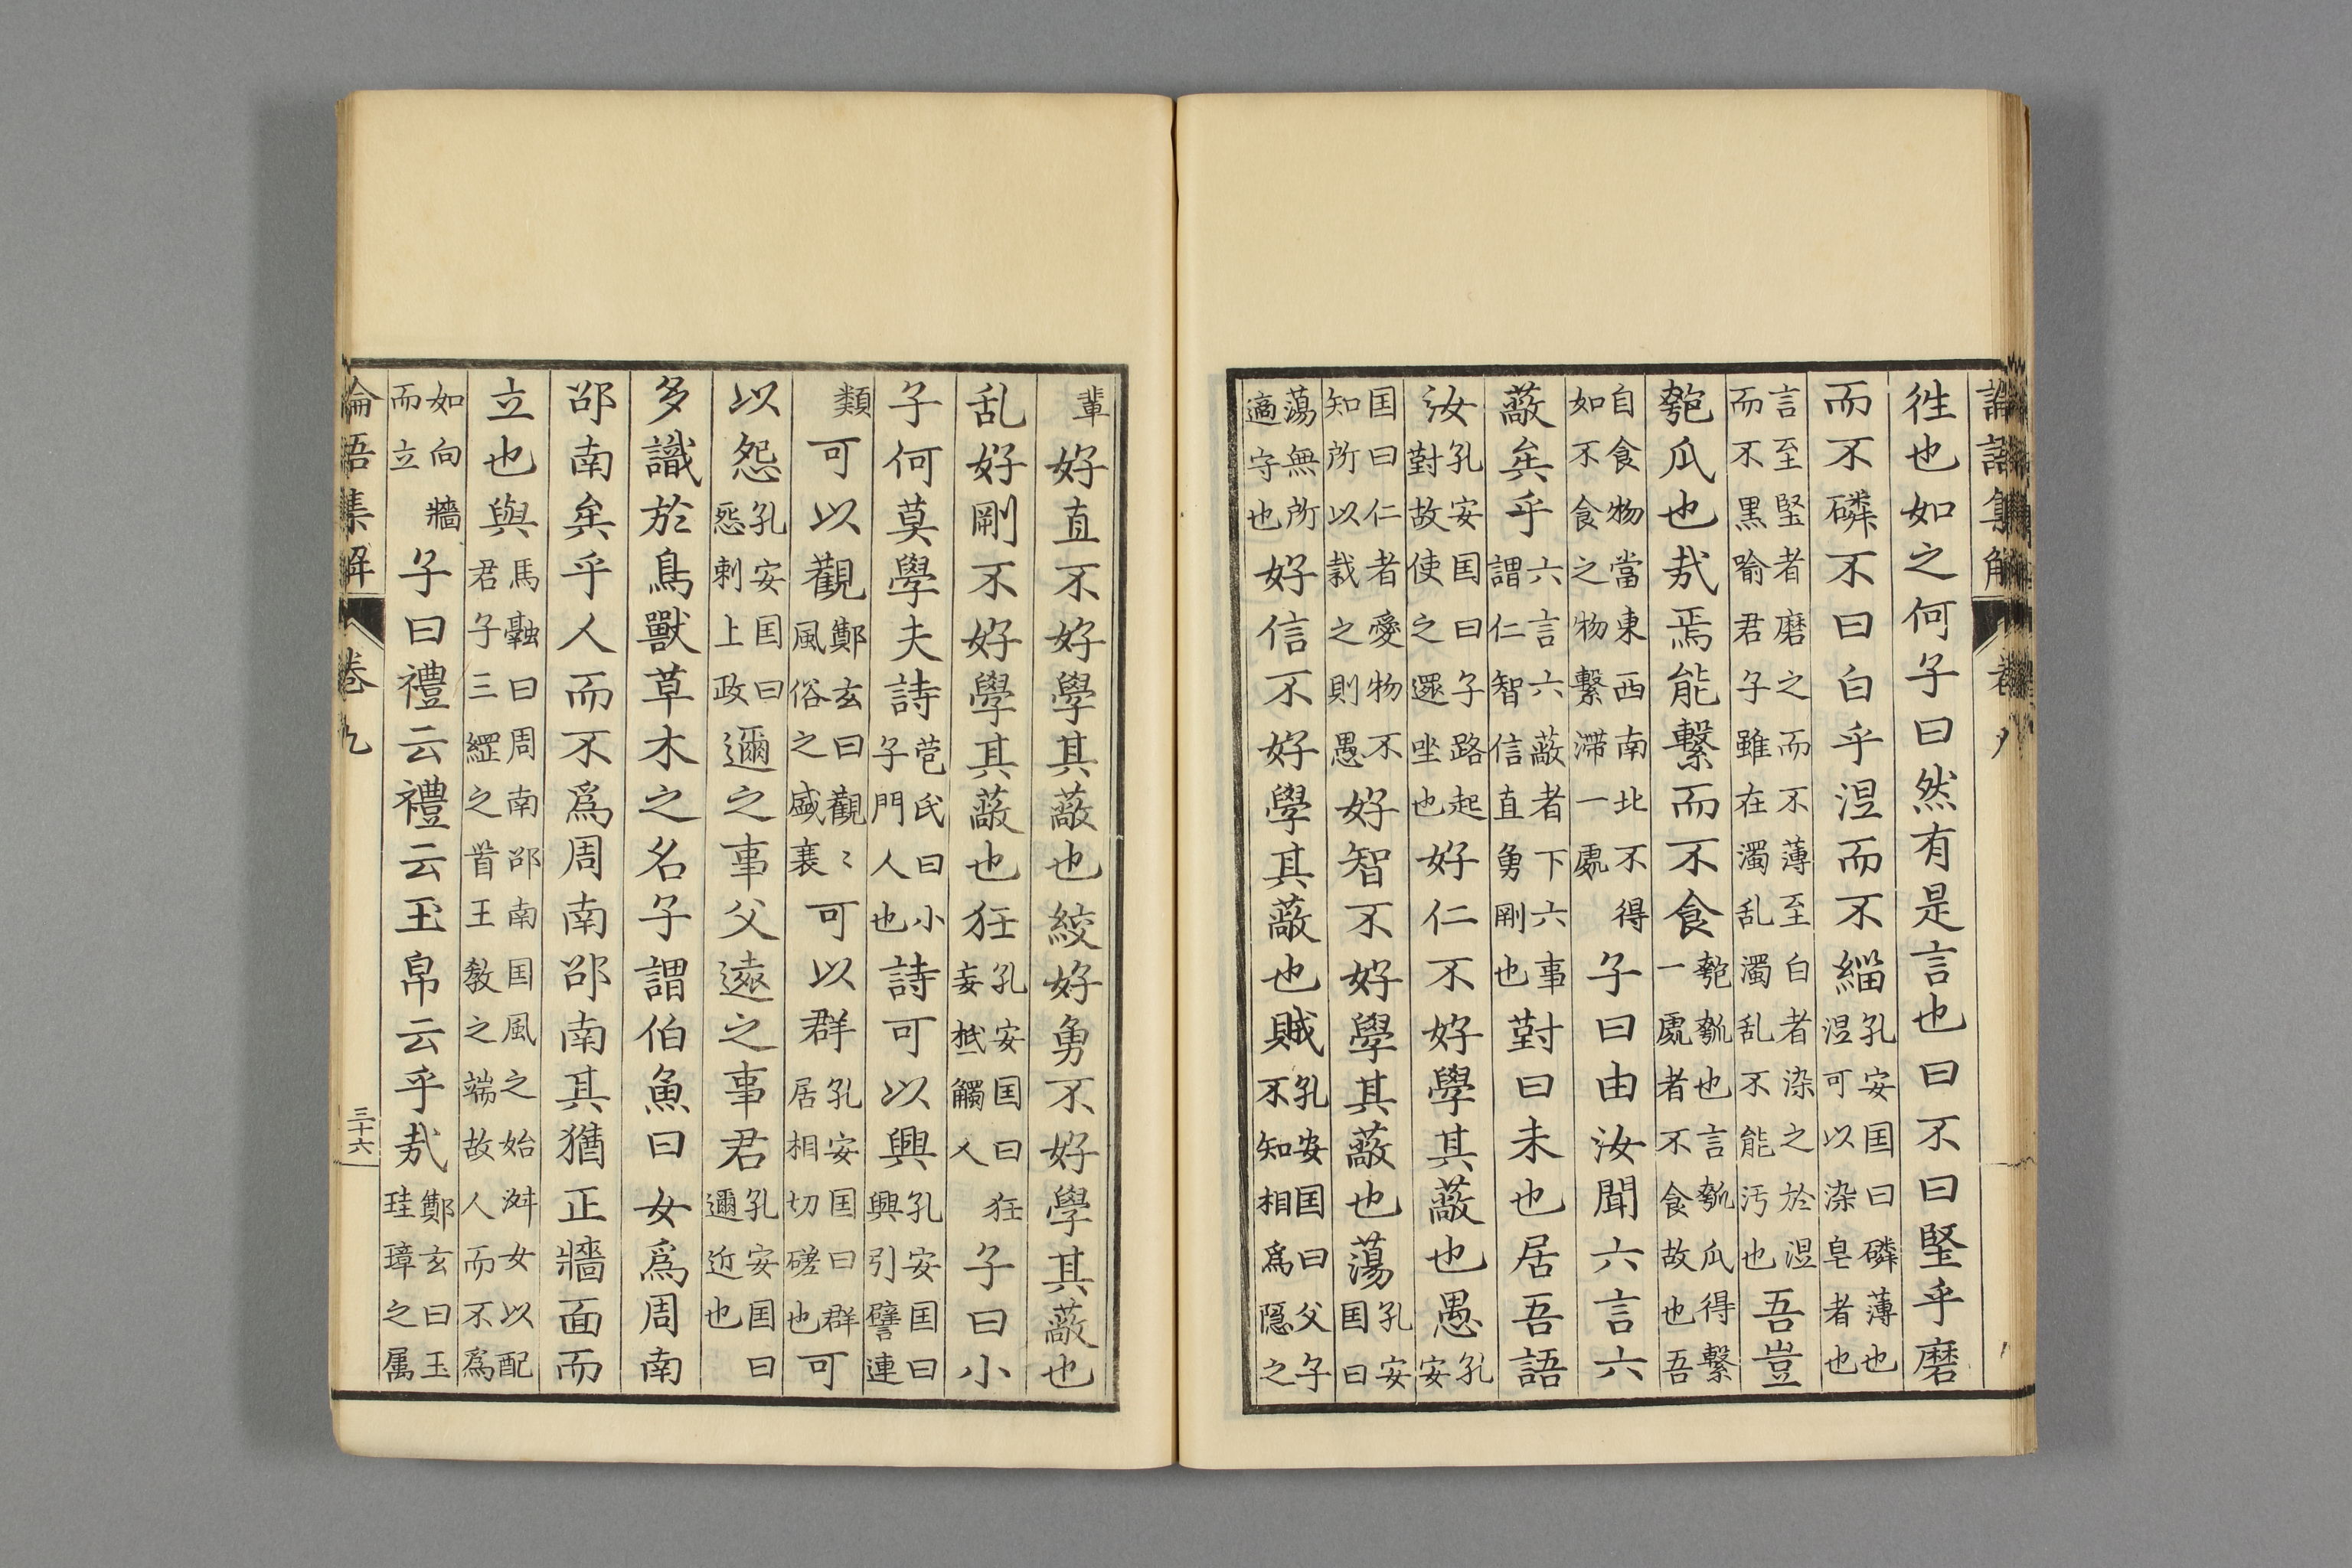 徃也如之何子曰然有是言也曰不曰堅乎磨
而不磷不曰白乎涅而不緇孔安国曰磷薄也涅可以染皂者也
言至堅者磨之而不薄至白者染之於涅而不黒喻君子雖在濁乱濁乱不能汚也吾豈
匏瓜也㢤焉能繋而不食匏瓠也言瓠瓜得繋一處者不食故也吾
自食物當東西南北不得如不食之物繋滯一處子曰由汝聞六言六
蔽矣乎六言六蔽者下六事謂仁智信直勇剛也對曰未也居吾語
汝孔安国曰子路起對故使之還坐也好仁不好學其蔽也愚孔安
国曰仁者愛物不知所以裁之則愚好智不好學其蔽也蕩孔安国曰
蕩無所適守也好信不好學其蔽也賊孔安国曰父子不知相為隠之
輩好直不好學其蔽也絞好勇不好學其蔽也
乱好剛不好學其蔽也狂孔安国曰狂妄抵觸人子曰小
子何莫學夫詩苞氏曰小子門人也詩可以興孔安国曰興引譬連
類可以觀鄭玄曰觀〻風俗之盛衰可以群孔安国曰群居相切磋也可
以怨孔安国曰怨刺上政邇之事父遠之事君孔安国曰邇近也
多識於鳥獸草木之名子謂伯魚曰女為周南
邵南矣乎人而不為周南邵南其猶正牆面而
立也與馬融曰周南邵南国風之始淑女以配君子三綱之首王教之端故人而不為
如向牆而立子曰禮云禮云玉帛云乎㢤鄭玄曰玉珪璋之属
論語集解 卷九 三十六